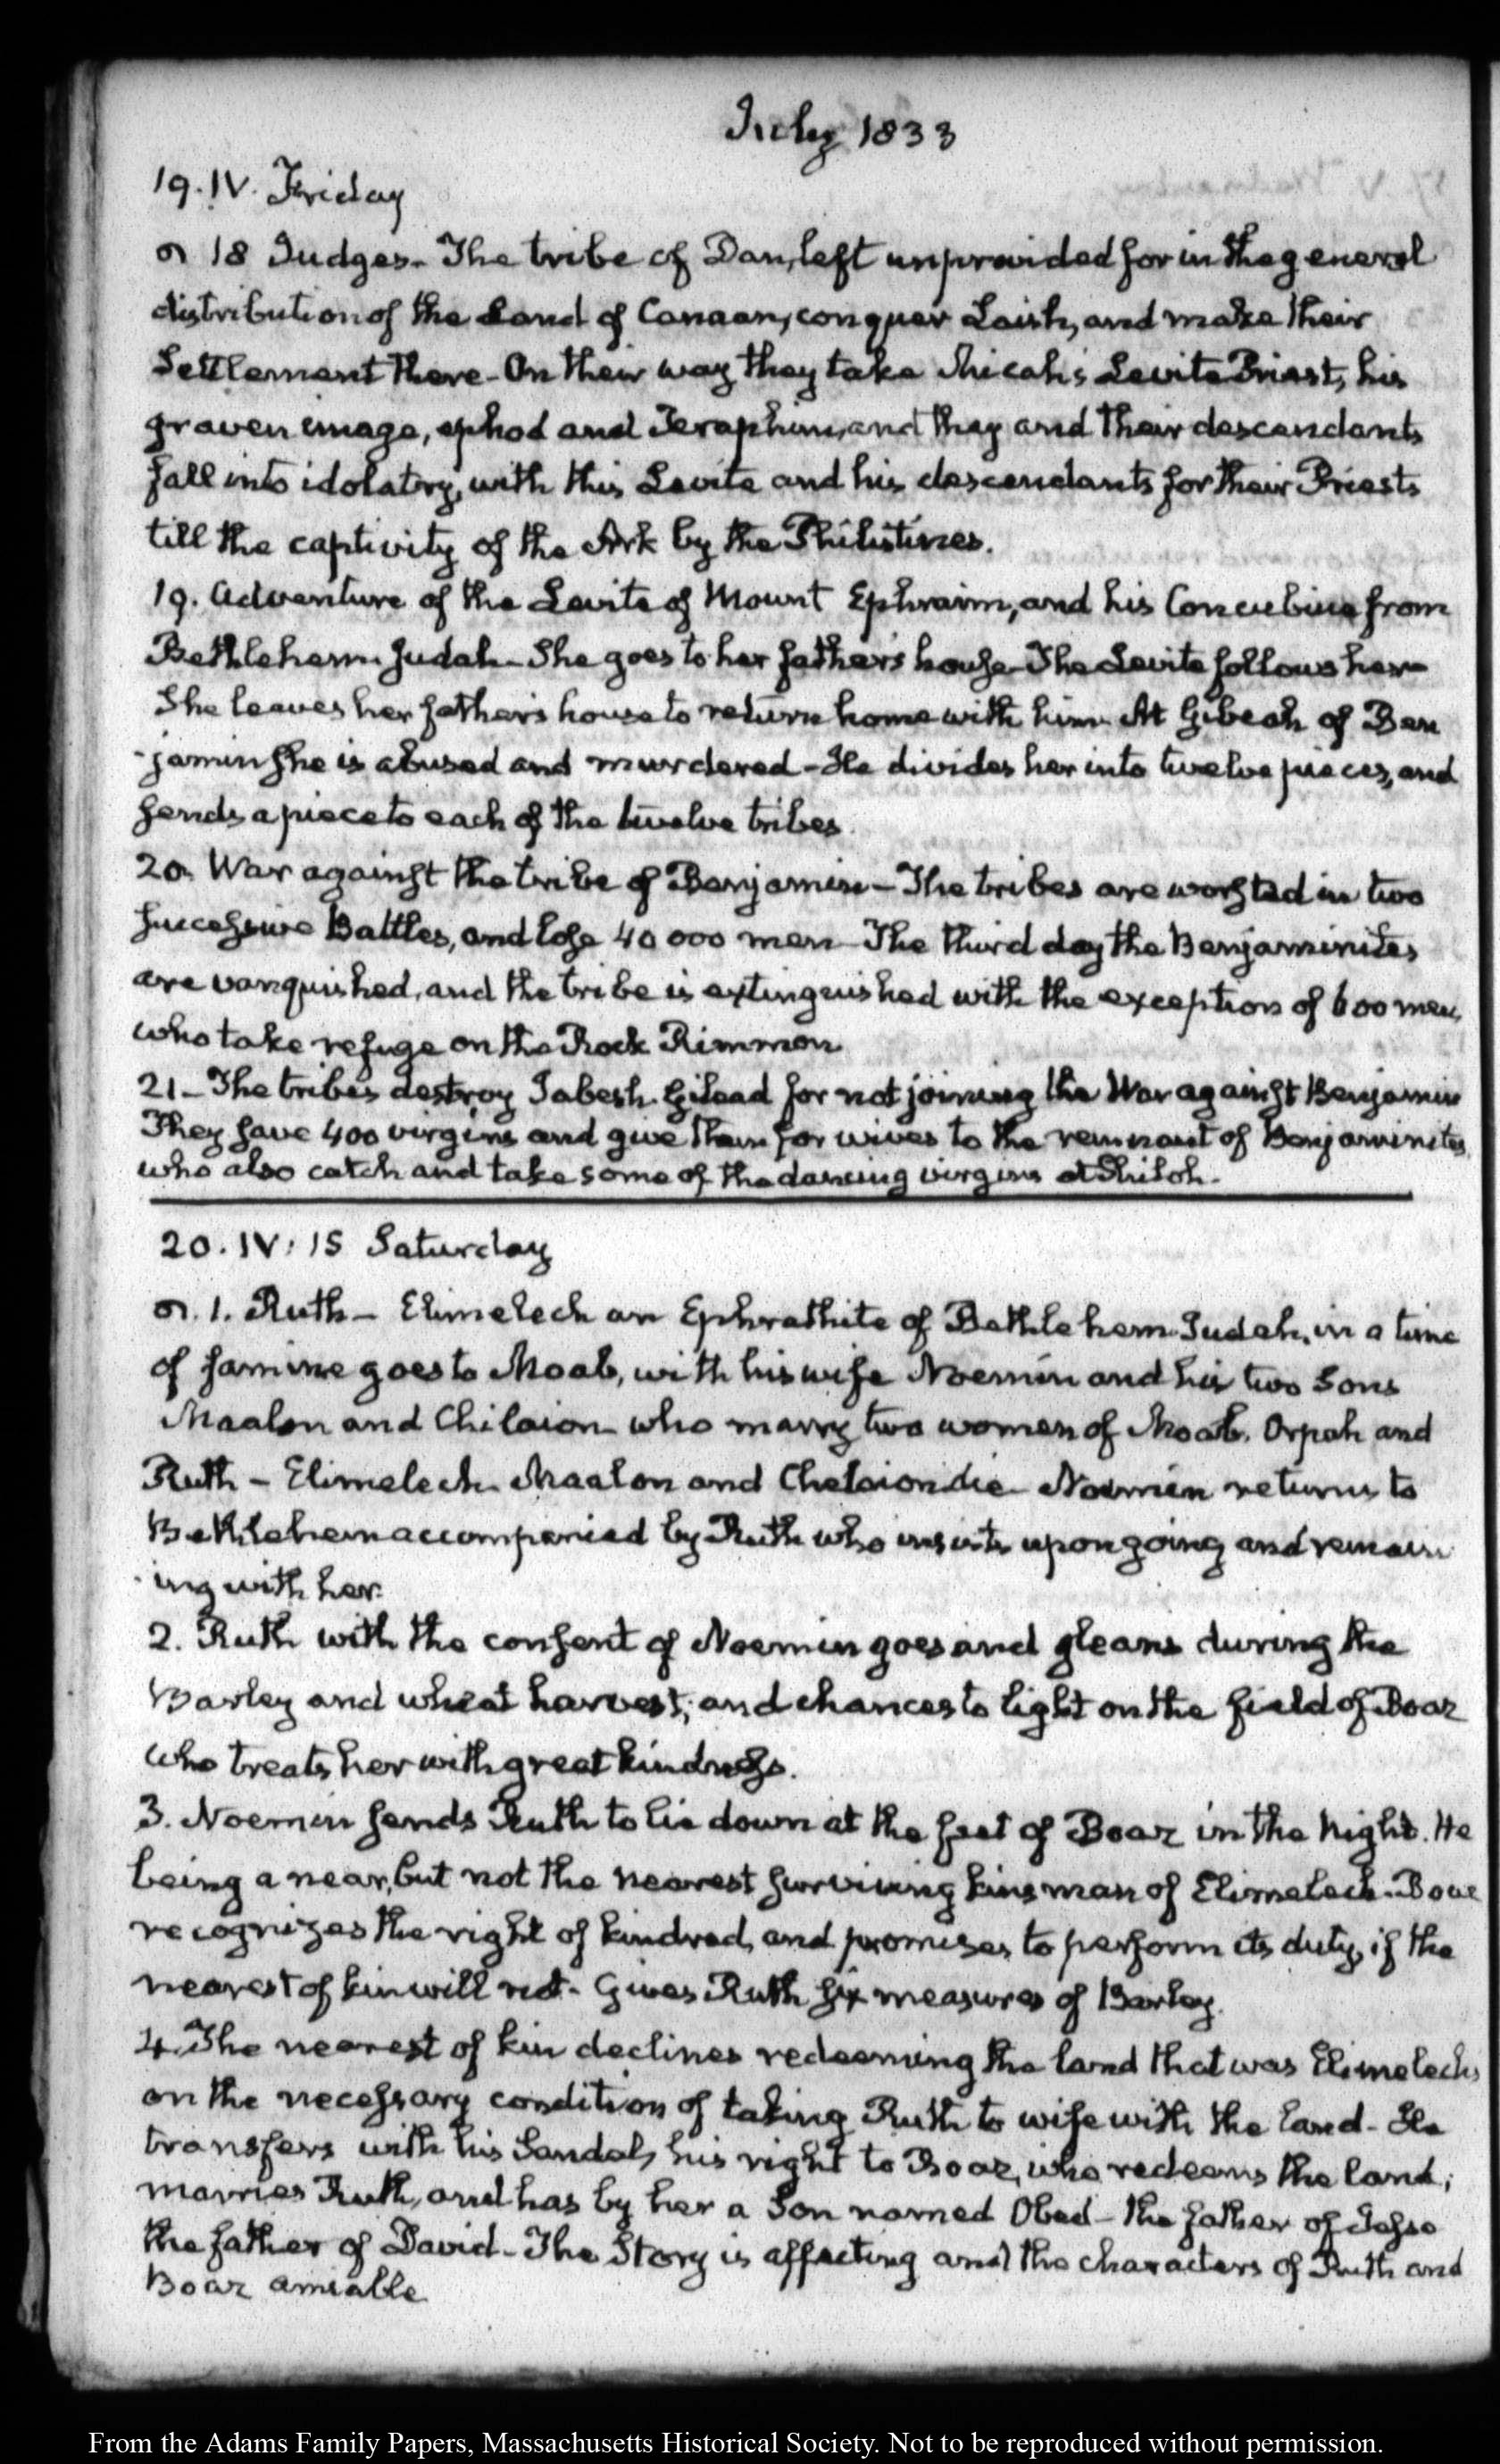 July 1833
19. IV. Friday
18 Judges - The tribe of Dan, left unprovided for in the general
distribution of the Land of Canaan, conquer Laish, and make their
Settlement there - On their way they take Micah's Levite Priest, his
graven image, ephod and Teraphim, and they and their descendants
fall into idolatry, with this Levite and his descendants for their Priests
till the captivity of the Ark by the Philistines.
19. Adventure of the Levite of Mount Ephraim, and his Concubine from
Bethlehem Judah - She goes to her father's house - The Levite follows her -
She leaves her father's house to return home with him - At Gibeah of Ben
-jamin she is abused and murdered - He divides her into twelve pieces, and
sends a piece to each of the twelve tribes.
20. War against the tribe of Benjamin - The tribes are worsted in two
successive Battles, and lose 40 000 men - The third day the Benjaminites
are vanquished, and the tribe is extinguished with the exception of 600 men,
who take refuge on the Rock Rimmon
21 - The tribes destroy Jabesh Gilead for not joining the War against Benjamin
They save 400 virgins and give them for wives to the remnant of Benjaminites
who also catch and take some of the dancing virgins at Shiloh.
20. IV: 15 Saturday
1. Ruth - Elimelech an Ephrathite of Bethlehem Judah, in a time
of famine goes to Moab, with his wife Noemin and his two Sons
Maalon and Chilaion who marry two women of Moab, Orpah and
Ruth - Elimelech Maalon and Chelaion die - Noemin returns to
Bethlehem accompanied by Ruth who insists upon going and remain
-ing with her.
2. Ruth with the consent of Noemin goes and gleans during the
Barley and wheat harvest; and chances to light on the field of Boaz
who treats her with great kindness.
3. Noemin sends Ruth to lie down at the feet of Boaz in the Night. He
being a near, but not the nearest surviving kinsman of Elimelech. Boaz
recognizes the right of kindred, and promises to perform its duty, if the
nearest of kin will not - Gives Ruth six measures of Barley.
4. The nearest of kin declines redeeming the land that was Elimelechs
on the necessary condition of taking Ruth to wife with the land - He
transfers with his Sandal, his right to Boaz, who redeems the land;
marries Ruth, and has by her a Son named Obed - the father of Jesse
the father of David - The Story is affecting and the characters of Ruth and
Boaz amiable
From the Adams Family Papers, Massachusetts Historical Society. Not to be reproduced without permission.